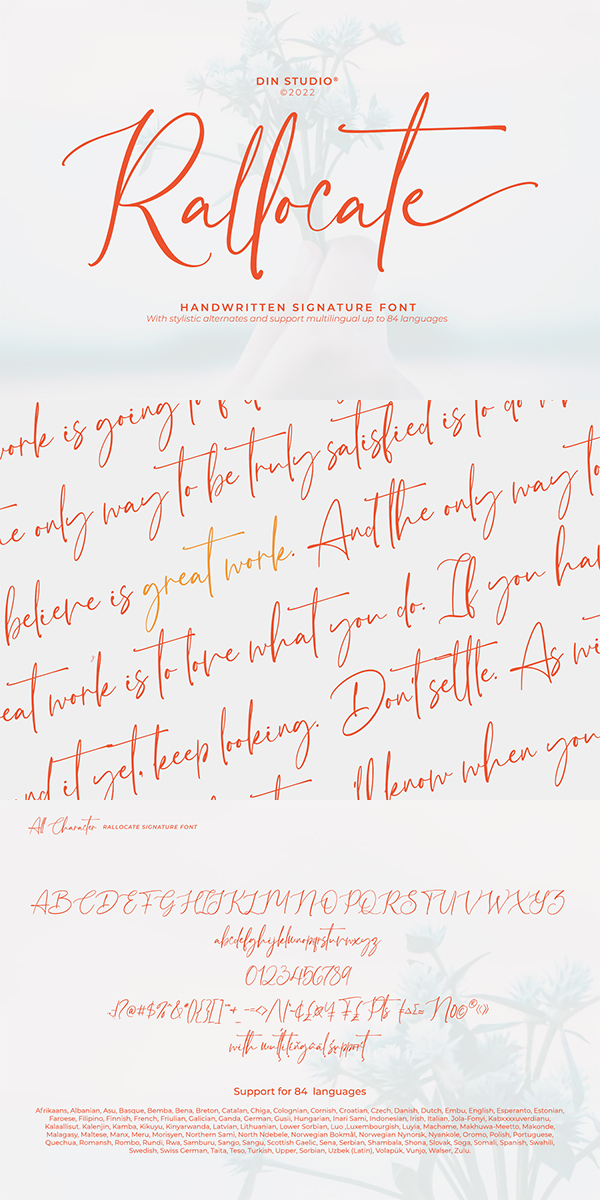 DIN STUDIO®
©2022
Rallocate
HANDWRITTEN SIGNATURE FONT
With stylistic alternates and support multilingual up to 84 languages
work is going to
only way to be truly satisfied is to do
believe is great work. And the only way to
work is to love what you do. If you
it yet, keep looking. Don't settle. As
'll know when you
All Character RALLOCATE SIGNATURE FONT
ABCDEFGHIJKLMNOPQRSTUVWXYZ
abcdefghijklmnopqrstuvwxyz
0123456789
with multilingual support
Support for 84 languages
Afrikaans, Albanian, Asu, Basque, Bemba, Bena, Breton, Catalan, Chiga, Colognian, Cornish, Croatian, Czech, Danish, Dutch, Embu, English, Esperanto, Estonian,
Faroese, Filipino, Finnish, French, Friulian, Galician, Ganda, German, Gusii, Hungarian, Inari Sami, Indonesian, Irish, Italian, Jola-Fonyi, Kabxxxuverdianu,
Kalaallisut, Kalenjin, Kamba, Kikuyu, Kinyarwanda, Latvian, Lithuanian, Lower Sorbian, Luo ,Luxembourgish, Luyia, Machame, Makhuwa-Meetto, Makonde,
Malagasy, Maltese, Manx, Meru, Morisyen, Northern Sami, North Ndebele, Norwegian Bokmål, Norwegian Nynorsk, Nyankole, Oromo, Polish, Portuguese,
Quechua, Romansh, Rombo, Rundi, Rwa, Samburu, Sango, Sangu, Scottish Gaelic, Sena, Serbian, Shambala, Shona, Slovak, Soga, Somali, Spanish, Swahili,
Swedish, Swiss German, Taita, Teso, Turkish, Upper, Sorbian, Uzbek (Latin), Volapük, Vunjo, Walser, Zulu.